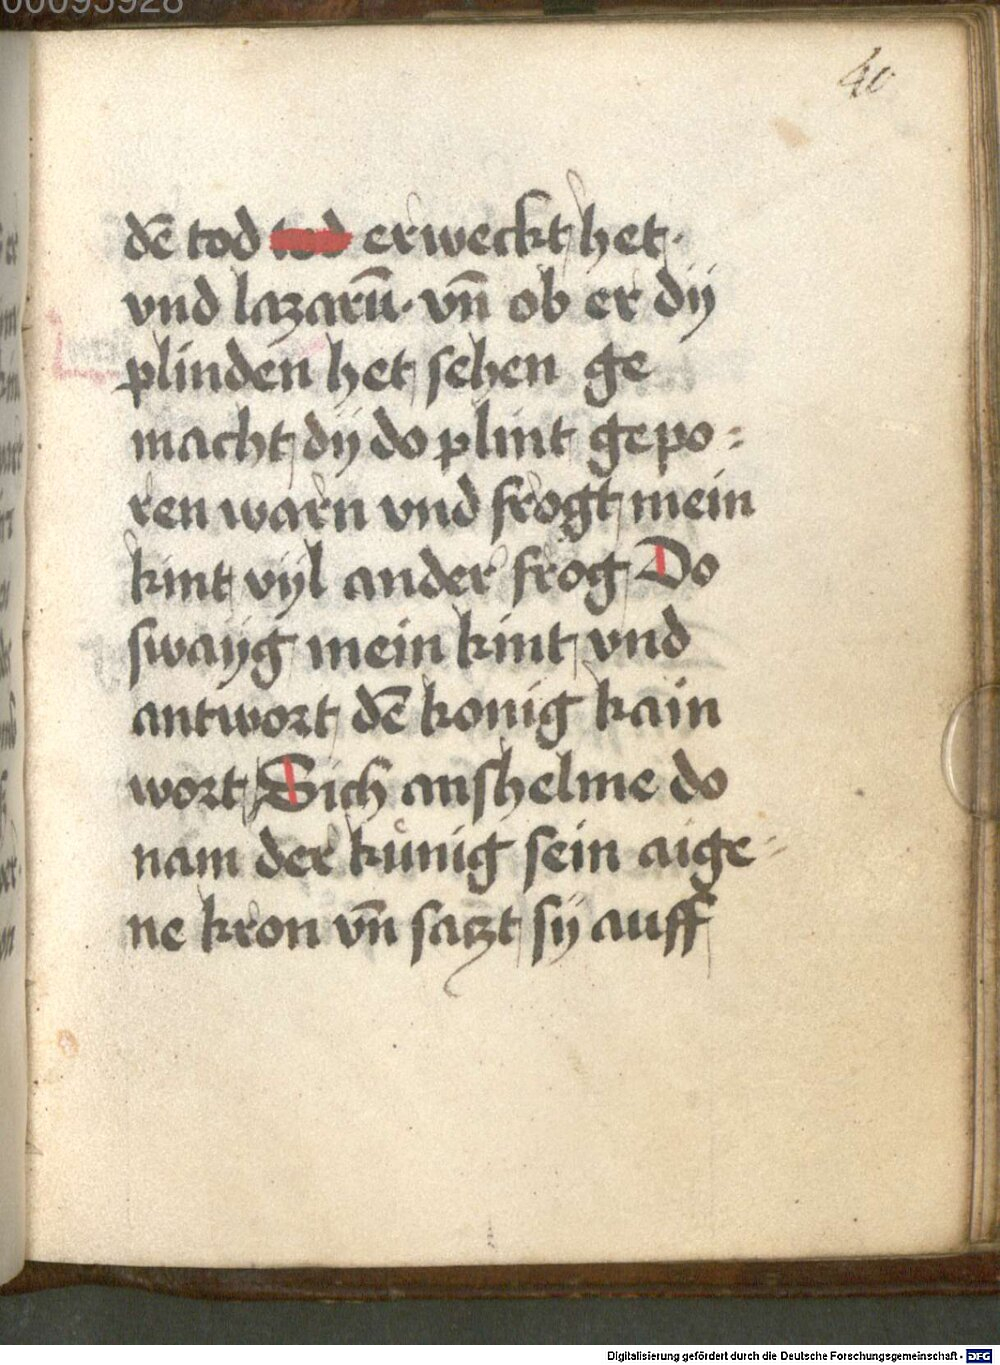 00095928
40
dē tod tod erweckt het·
vnd lazarū· vn̄ ob er dÿ
plinden het sehen ge
macht dÿ do plint gepo=
ren warn vnd frogt mein
kint vÿl ander frog Do
swaÿg mein kint vnd
antwort dē konig kain
wort Sich anshelme do
nam der kůnig sein aige=
ne kron vn̄ saczt sÿ auff
Digitalisierung gefördert durch die Deutsche Forschungsgemeinschaft - DFG